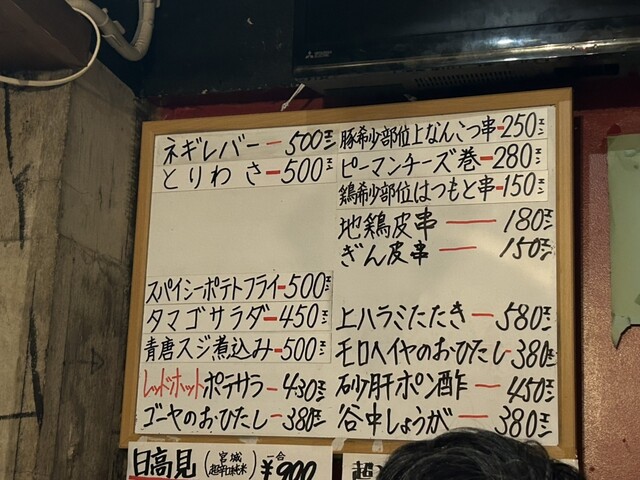 MITSUBISHI
ネギレバー－500エン
とりわさ－500エン
スパイシーポテトフライ－500エン
タマゴサラダ－450エン
青唐スジ煮込み－500エン
レッドホットポテサラ－430エン
ゴーヤのおひたし－380エン
豚希少部位上なんこつ串－250エン
ピーマンチーズ巻－280エン
鶏希少部位はつもと串－150エン
地鶏皮串－180エン
ぎん皮串－150エン
上ハラミたたき－580エン
モロヘイヤのおひたし－380エン
砂肝ポン酢－450エン
谷中しょうが－380エン
日高見（宮城 超辛口純米）一合 ¥900
超